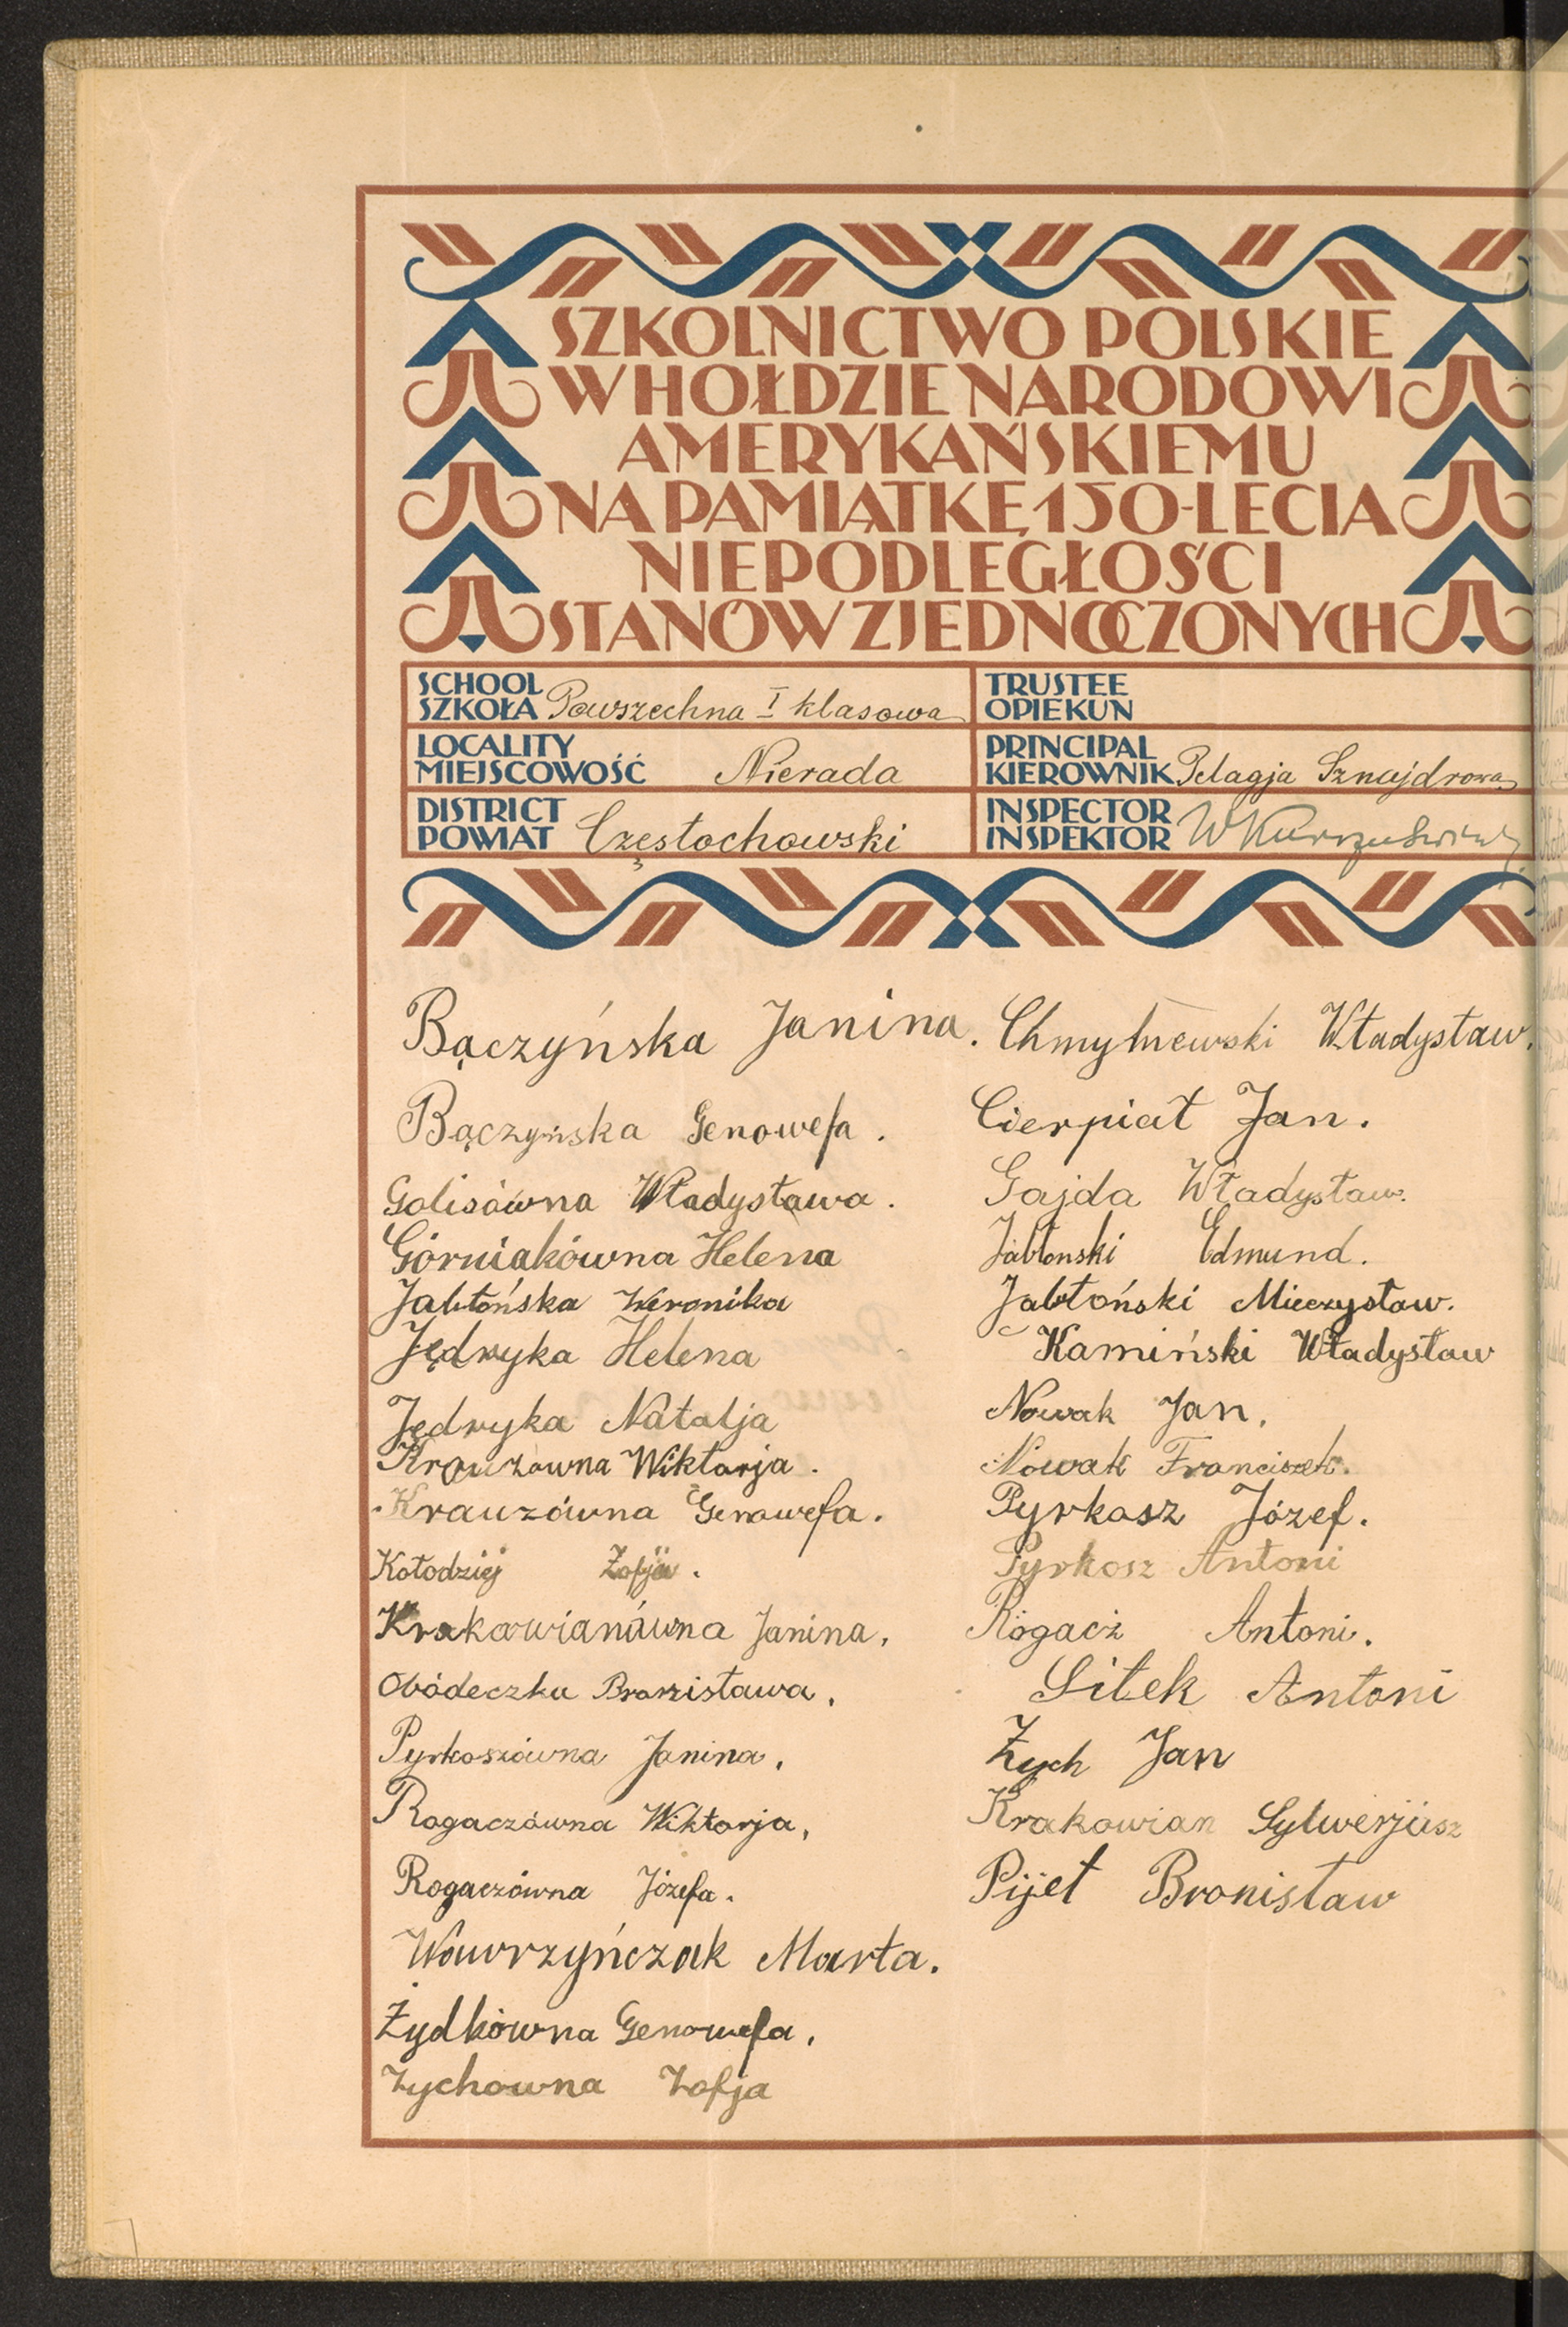 SZKOLNICTWO POLSKIE
W HOŁDZIE NARODOWI
AMERYKAŃSKIEMU
NA PAMIĄTKĘ 150-LECIA
NIEPODLEGŁOŚCI
STANÓW ZJEDNOCZONYCH
SCHOOL
SZKOŁA Powszechna I klasowa
TRUSTEE
OPIEKUN
LOCALITY
MIEJSCOWOŚĆ Nierada
PRINCIPAL
KIEROWNIK Pelagja Sznajdrowa
DISTRICT
POWIAT Częstochowski
INSPECTOR
INSPEKTOR W
Bączyńska Janina.
Bączyńska Genowefa.
Golisówna Władysława.
Górniakówna Helena
Jabłońska Weronika
Jędryka Helena
Jędryka Natalja
Krauzowna Wiktorja.
Krauzówna Genowefa.
Kołodziej Zofja.
Krakowianówna Janina.
Obódeczka Bronisława.
Pyrkoszówna Janina.
Rogaczówna Wiktorja,
Rogaczówna Józefa.
Wawrzyńczak Marta.
Żydkówna Genowefa,
Zychowna Zofja
Chmylniewski Władysław.
Cierpiał Jan.
Gajda Władysław.
Jabłonski Edmund.
Jabłoński Mieczysław.
Kamiński Władysław
Nowak Jan.
Nowak Franciszek.
Pyrkosz Józef.
Pyrkosz Antoni
Rogacz Antoni.
Sitek Antoni
Zych Jan
Krakowian Sylwerjusz
Pijet Bronisław